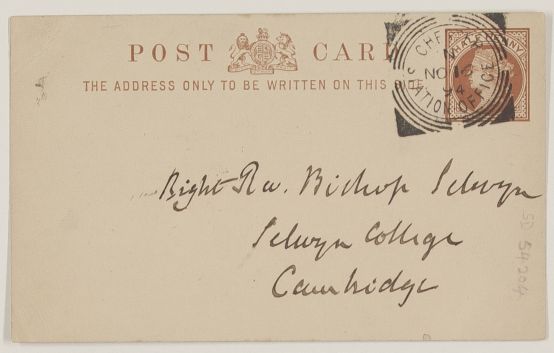 POST CARD
THE ADDRESS ONLY TO BE WRITTEN ON THIS SIDE
HALFPENNY
NO 16
94
STATION OFFICE
Right Rev. Bishop Selwyn
Selwyn College
Cambridge
SD 54204